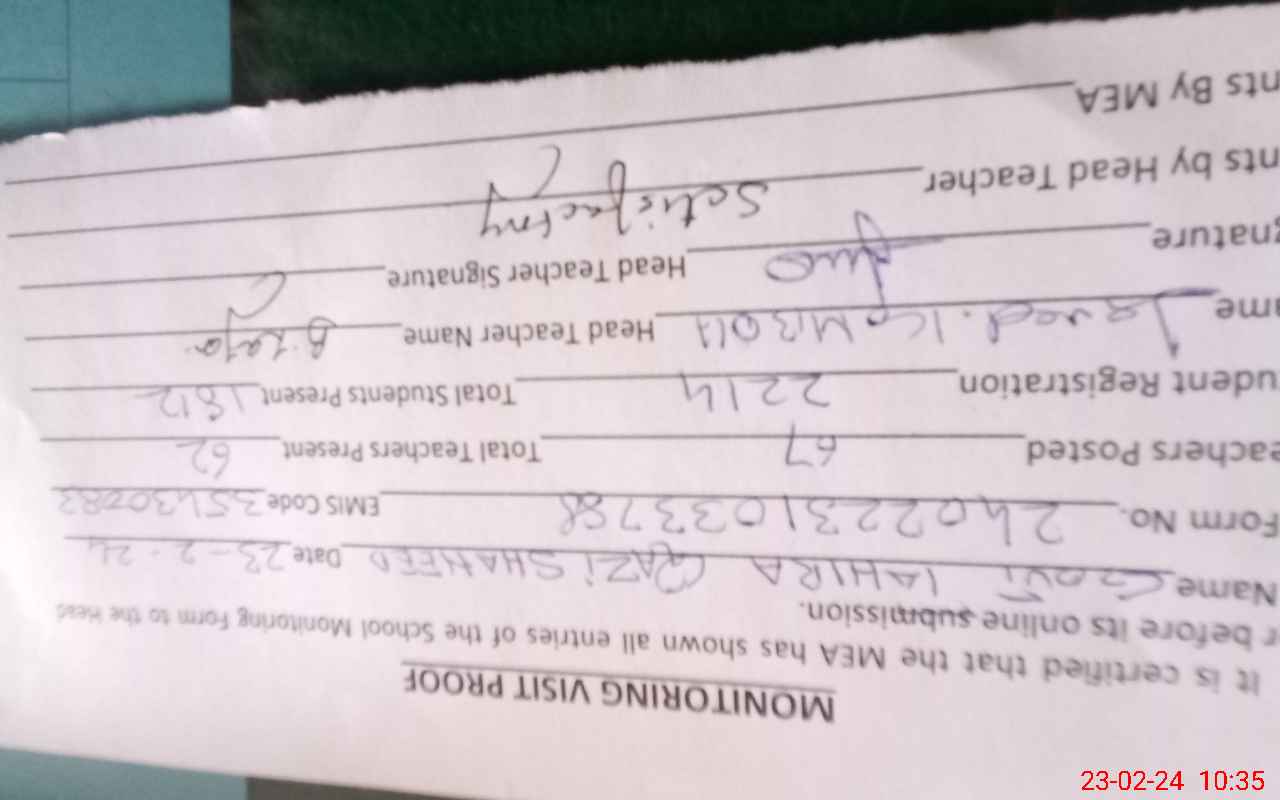 MONITORING VISIT PROOF
It is certified that the MEA has shown all entries of the School Monitoring Form to the Head
r before its online submission.
Name Govt TAHIRA QAZI SHAHEED Date 23-2-24
Form No. 24022310033788 EMIS Code 35430083
eachers Posted 67 Total Teachers Present 62
udent Registration 2214 Total Students Present 1812
ame Javed Head Teacher Name
gnature Head Teacher Signature
nts by Head Teacher Satisfactory
nts By MEA
23-02-24 10:35